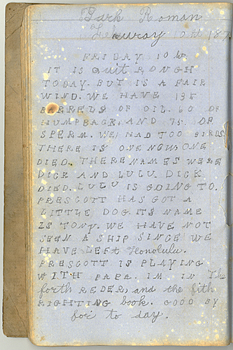 Bark Roman
FRIDAY 10th
IT IS QUIT ROUGH
TODAY. BUT IS A FAIR
WIND. WE HAVE 135
BARRELS OF OIL. 60 OF
HUMPBACK. AND 75. OF
SPERM. WE HAD TOO BIRDS
THERE IS ONE NOW ONE
DIED. THERE NAMES WERE
DICK AND LULU. DICK.
DIED. LULU IS GOING TO.
PRESCOTT HAS GOT A
LITTLE DOG ITS NAME
IS TONY. WE HAVE NOT
SEEN A SHIP SINCE WE
HAVE LEFT Honolulu.
PRESCOTT IS PLAYING
WITH PAPA. IM. IN The
forth REDER, and the fith
RIGHTING book. GOOD BY
for to day.